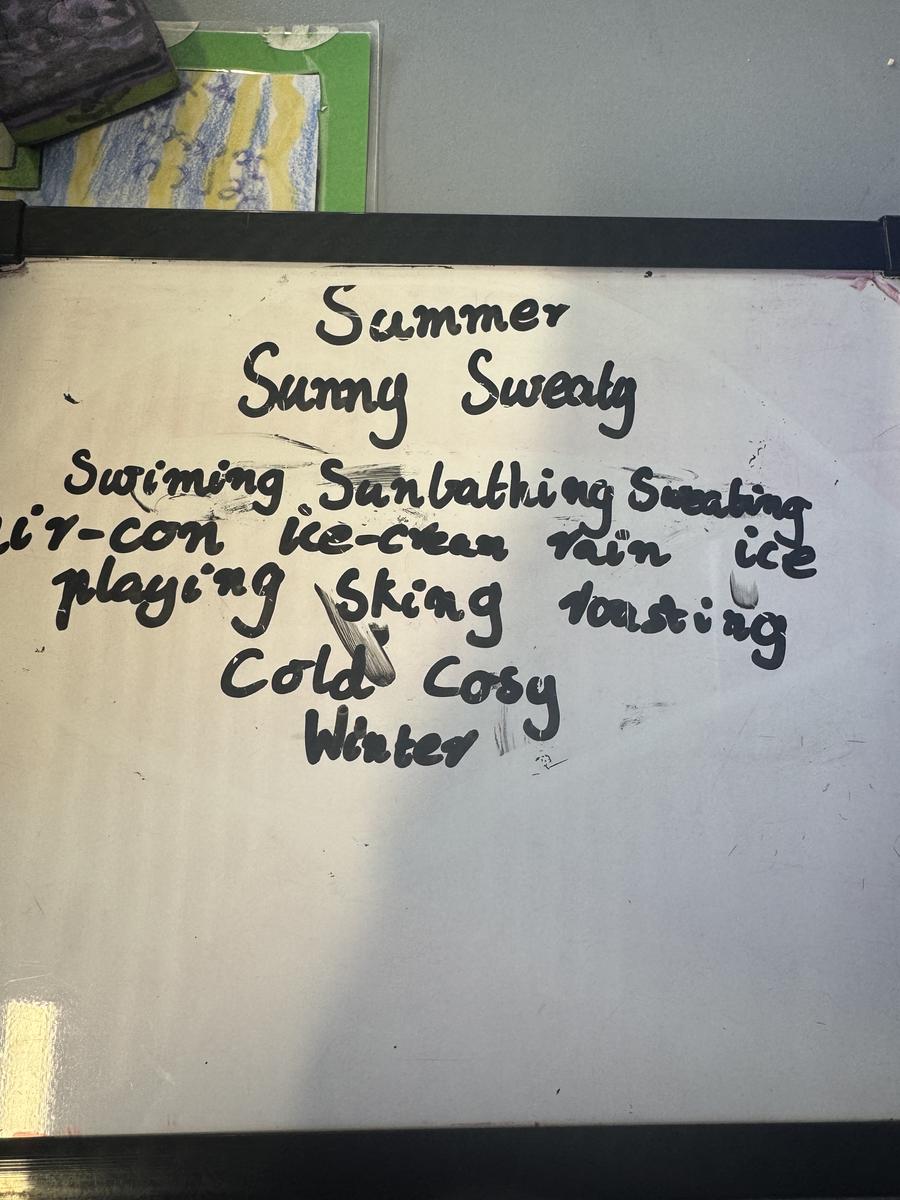 Summer
Sunny Sweaty
Swiming Sunbathing Sweating
air-con ice-cream rain ice
playing Sking roasting
Cold Cosy
Winter